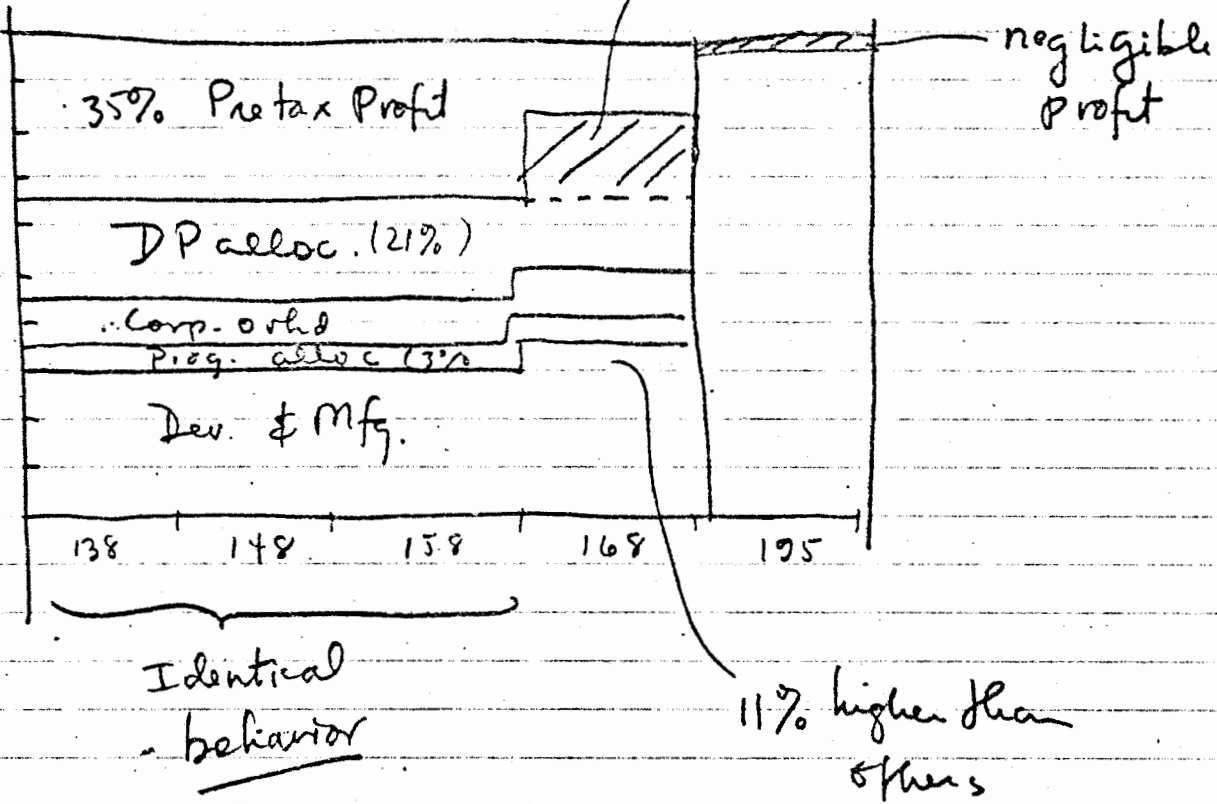 negligible
profit
35% Pretax Profit
DP alloc. (21%)
Corp. ovhd
Prog. alloc (3%
Dev. & Mfg.
138 148 158 168 195
Identical
behavior
11% higher than
others